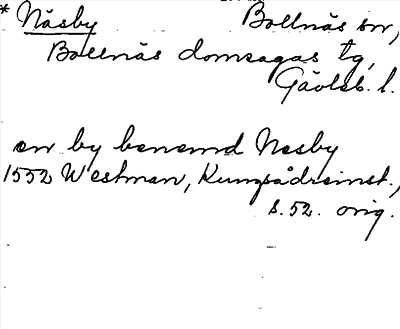 * Näsby Bollnäs sn,
Bollnäs domsagas tg,
Gävleb. l.
en by benemd Nesby
1552 Westman, Kungsådreinst.,
s. 52. orig.